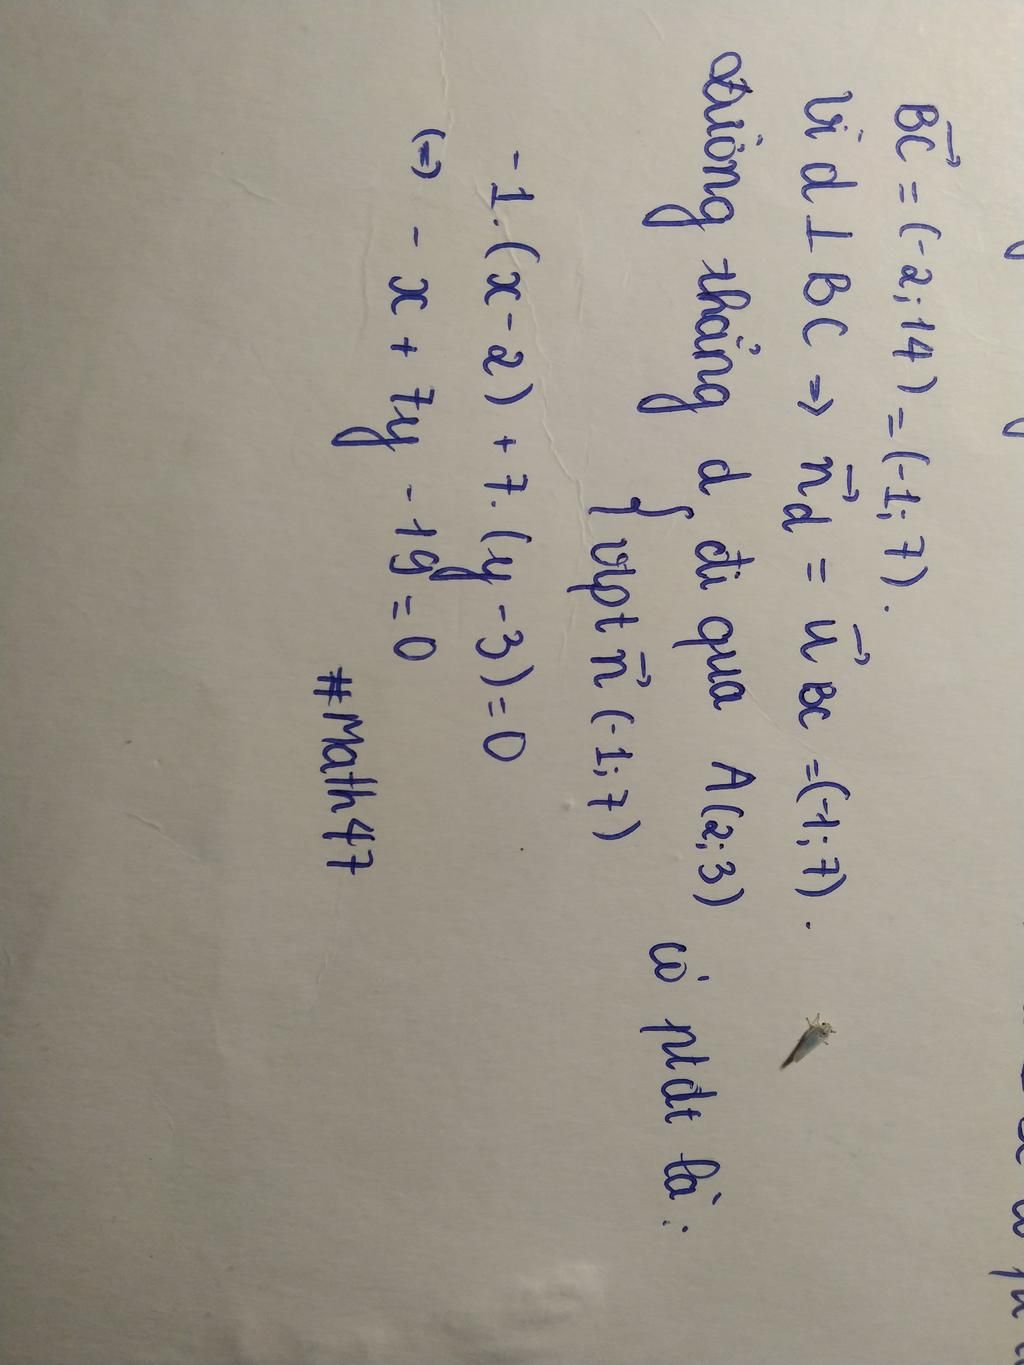 BC→ = (-2; 14) = (-1; 7).
Vì d ⊥ BC => n→d = u→BC = (-1; 7).
Đường thẳng d { đi qua A(2; 3)
vtpt n→ (-1; 7) có ptđt là:
-1.(x-2) + 7.(y-3) = 0
(=) -x + 7y - 19 = 0
#Math47